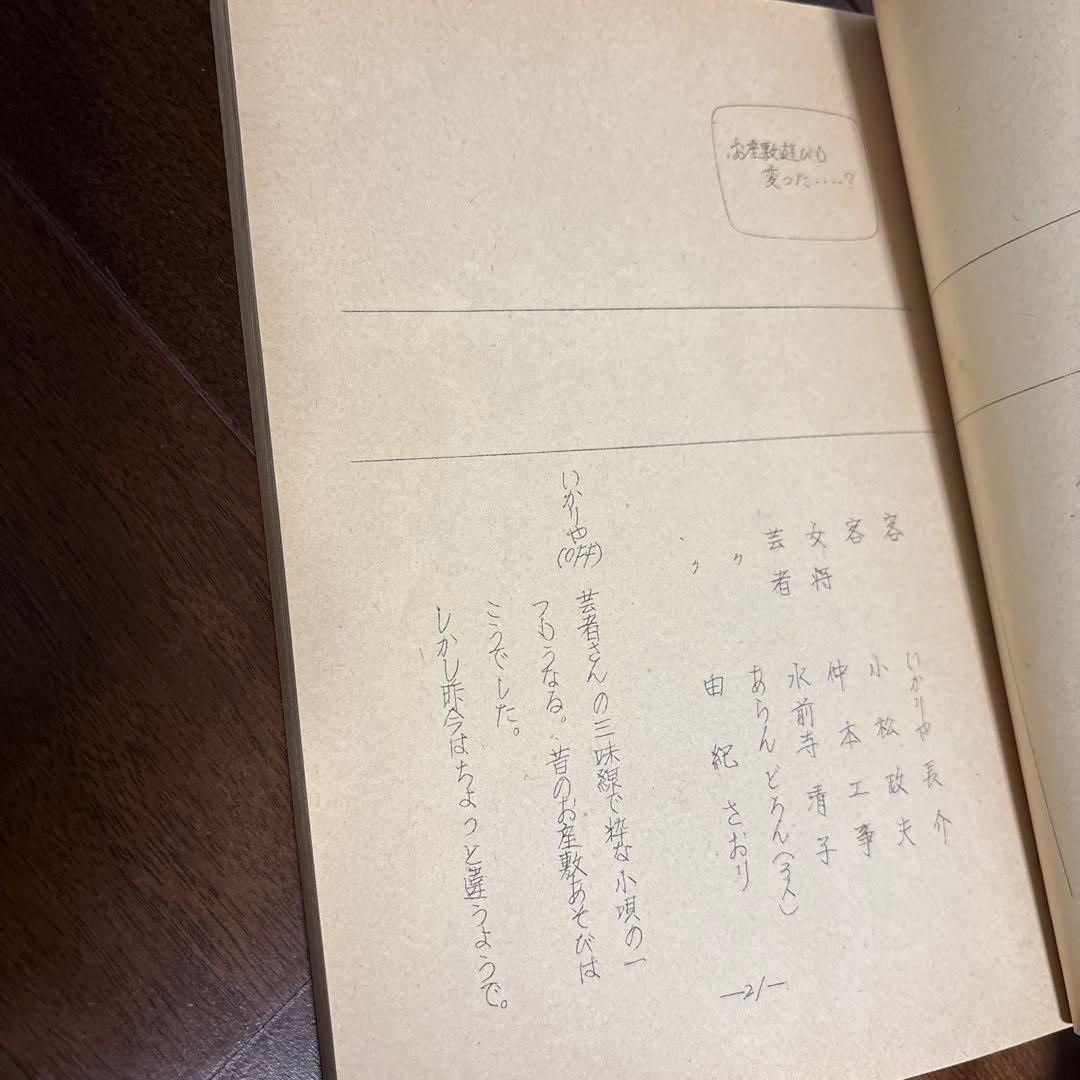 お座敷遊びも
変った‥‥?
客 いかりや長介
客 小松政夫
女将 仲本工事
芸者 水前寺清子
〃 あらんどろん(3人)
〃 由紀さおり
いかりや(OFF) 芸者さんの三味線で粋な小唄の一
つもうなる。昔のお座敷あそびは
こうでした。
しかし昨今はちょっと違うようで。
—21—